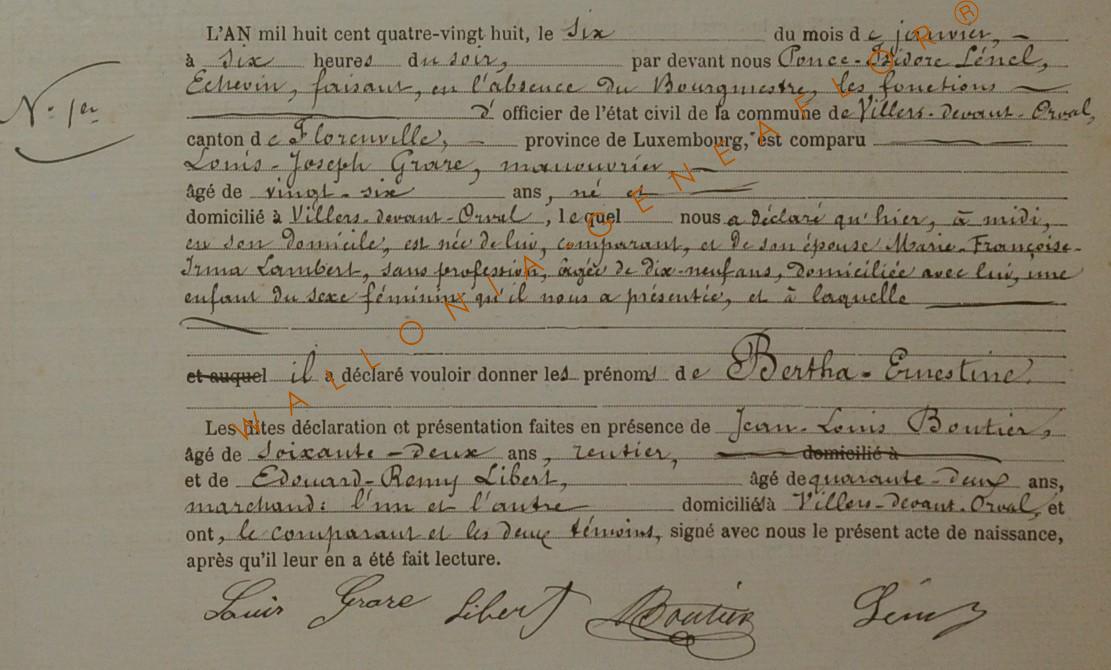 L'AN mil huit cent quatre-vingt huit, le six du mois de janvier,
à six heures du soir, par devant nous Ponce-Isidore Lénel,
Echevin, faisant, en l'absence du Bourgmestre, les fonctions
N° 1er
d'officier de l'état civil de la commune de Villers-devant-Orval,
canton de Florenville, province de Luxembourg, est comparu
Louis-Joseph Grare, manouvrier
âgé de vingt-six ans, né et
domicilié à Villers-devant-Orval, lequel nous a déclaré qu'hier, à midi,
en son domicile, est née de lui, comparant, et de son épouse Marie-Françoise-
Irma Lambert, sans profession, âgée de dix-neuf ans, domiciliée avec lui, une
enfant du sexe féminin qu'il nous a présentée, et à laquelle
et auquel il a déclaré vouloir donner les prénoms de Bertha-Ernestine.
Les dites déclaration et présentation faites en présence de Jean-Louis Boutier,
âgé de soixante-deux ans, rentier, domicilié à
et de Edouard-Remy Libert, âgé de quarante-deux ans,
marchand: l'un et l'autre domiciliés à Villers-devant-Orval, et
ont, le comparant et les deux témoins, signé avec nous le présent acte de naissance,
après qu'il leur en a été fait lecture.
Louis Grare Libert Boutier Lénel
WALLONIA GENEALOR®